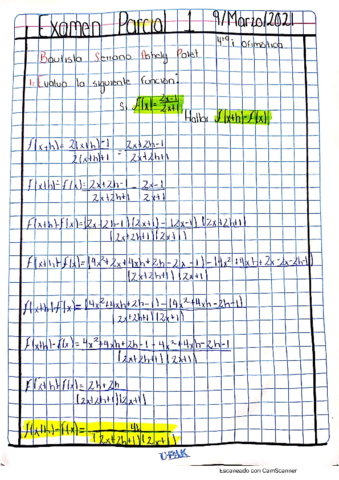 Examen Parcial 1 9/Marzo/2021
4to i Ofimática
Bautista Serrano Polet
1. Evalua la siguiente función:
Si f(x)=2x-1/2x+1
Hallar f(x+h)-f(x)
f(x+h)=2(x+h)-1/2(x+h)+1 = 2x+2h-1/2x+2h+1
f(x+h)-f(x)=2x+2h-1/2x+2h+1 - 2x-1/2x+1
f(x+h)-f(x)=(2x+2h-1)(2x+1)-(2x-1)(2x+2h+1)/(2x+2h+1)(2x+1)
f(x+h)-f(x)=(4x²+2x+4xh+2h-2x-1)-(4x²+4xh+2x-2x-2h-1)/(2x+2h+1)(2x+1)
f(x+h)-f(x)=(4x²+4xh+2h-1)-(4x²+4xh-2h-1)/(2x+2h+1)(2x+1)
f(x+h)-f(x)=4x²+4xh+2h-1-4x²-4xh-2h-1/(2x+2h+1)(2x+1)
f(x+h)-f(x)=2h+2h/(2x+2h+1)(2x+1)
f(x+h)-f(x)=4h/(2x+2h+1)(2x+1)
Escaneado con CamScanner